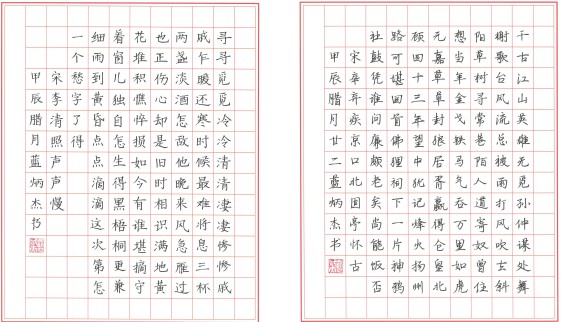 寻寻觅觅冷冷清清凄凄惨惨戚
戚乍暖还寒时候最难将息三杯
两盏淡酒怎敌他晚来风急雁过
也正伤心却是旧时相识满地黄
花堆积憔悴损如今有谁堪摘守
着窗儿独自怎生得黑梧桐更兼
细雨到黄昏点点滴滴这次第怎
一个愁字了得
宋李清照声声慢
甲辰腊月蓝炳杰书
千古江山英雄无觅孙仲谋处舞
榭歌台风流总被雨打风吹斜
阳草树寻常巷陌人道寄奴曾住
想当年金戈铁马气吞万里如虎
元嘉草草封狼居胥赢得仓皇北
顾四十三年望中犹记烽火扬州
路可堪回首佛狸祠下一片神鸦
社鼓凭谁问廉颇老矣尚能饭否
宋辛弃疾京口北固亭怀古
甲辰腊月廿二蓝炳杰书